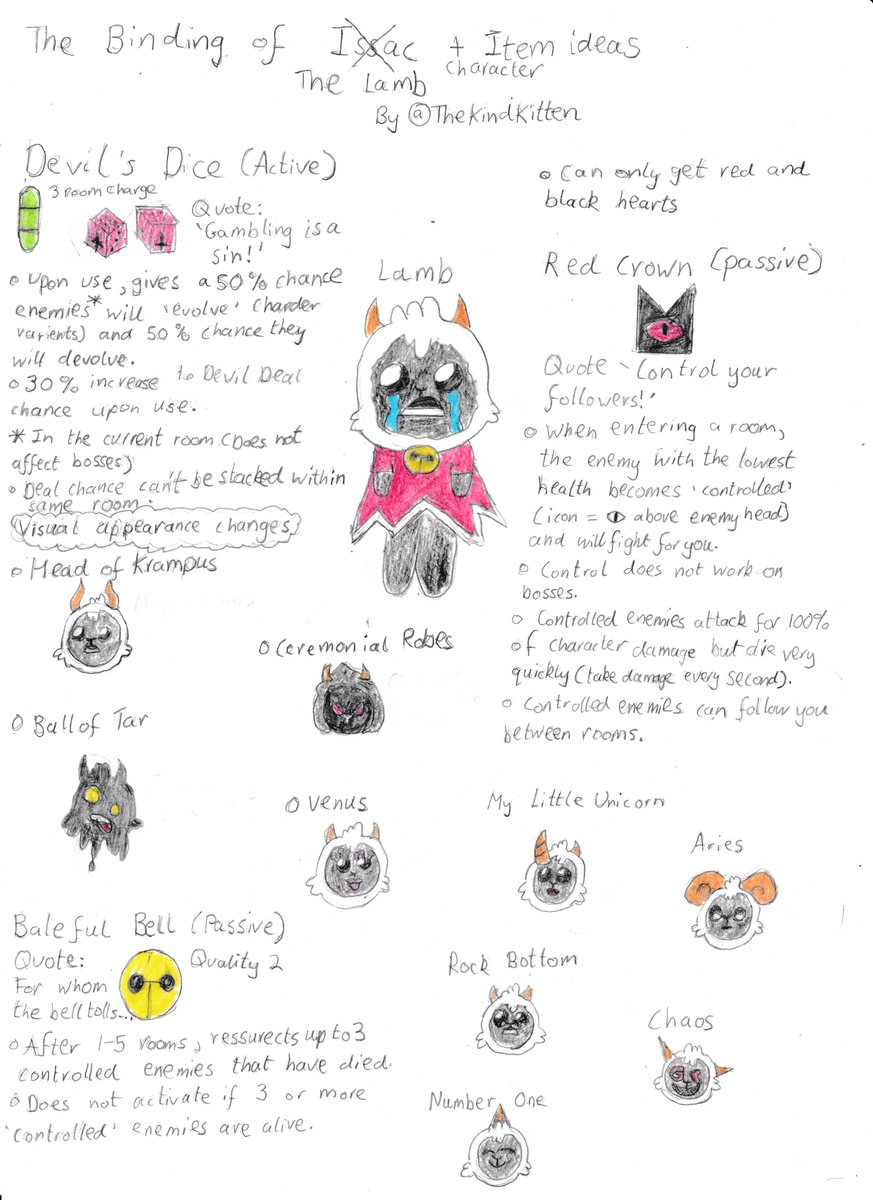 The Binding of Issac + Item ideas
The Lamb character
By @TheKindKitten
Devil's Dice (Active)
3 room charge
Quote:
'Gambling is a
sin!'
Upon use, gives a 50% chance
enemies* will 'evolve' (harder
varients) and 50% chance they
will devolve.
30% increase to Devil Deal
chance upon use.
* In the current room (Does not
affect bosses)
Deal chance can't be stacked within
same room.
Visual appearance changes
Head of Krampus
Ceremonial Robes
Ball of Tar
Venus
Lamb
Can only get red and
black hearts
Red Crown (passive)
Quote 'Control your
followers!'
When entering a room,
the enemy with the lowest
health becomes 'controlled'
(icon = above enemy head)
and will fight for you.
Control does not work on
bosses.
Controlled enemies attack for 100%
of character damage but die very
quickly (take damage every second).
Controlled enemies can follow you
between rooms.
My Little Unicorn
Aries
Rock Bottom
Chaos
Number One
Baleful Bell (Passive)
Quote:
For whom
the bell tolls...
Quality 2
After 1-5 rooms, ressurects up to 3
controlled enemies that have died.
Does not activate if 3 or more
'controlled' enemies are alive.